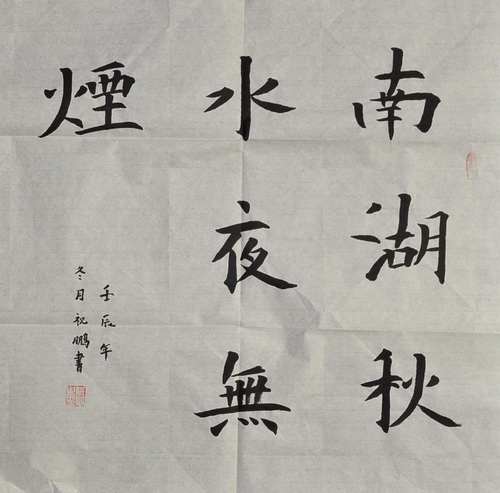 南湖秋
水夜無
煙
壬辰年
冬月祝鵬書